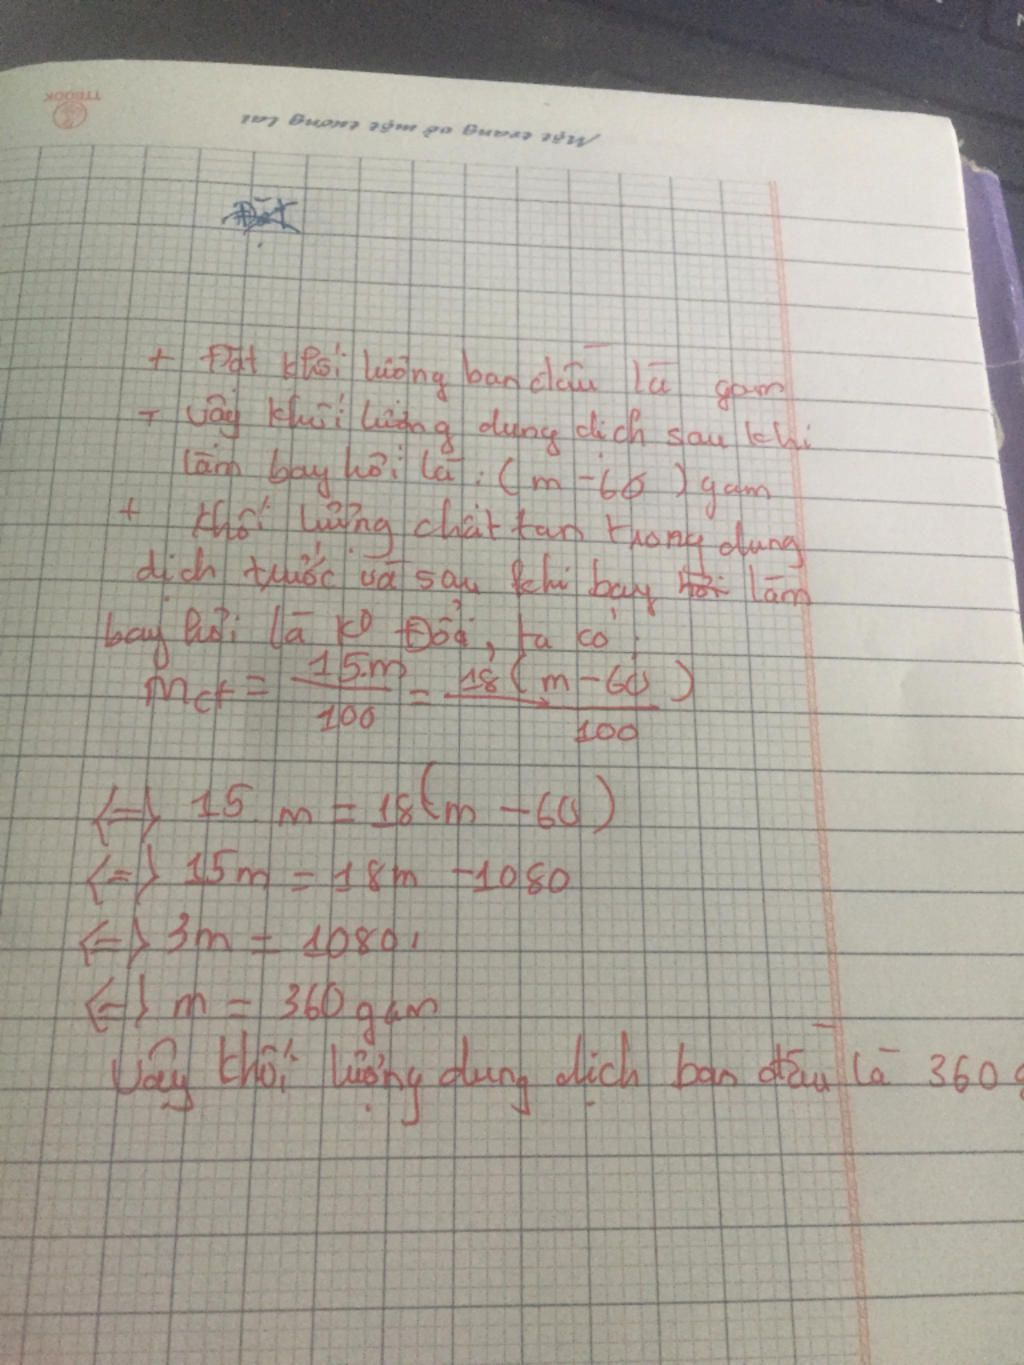 TTBOOK
Một trang vở một tương lai
+ Đặt khối lượng ban đầu là gam
- Vậy khối lượng dung dịch sau khi
làm bay hơi là: (m - 60) gam
+ khối lượng chất tan trong dung
dịch trước và sau khi bay làm
bay hơi là ko Đổi, ta có:
mct = 15.m/100 = 18(m - 60)/100
<=> 15 m = 18(m - 60)
<=> 15m = 18m - 1080
<=> 3m = 1080
<=> m = 360 gam
Vậy khối lượng dung dịch ban đầu là 360 g